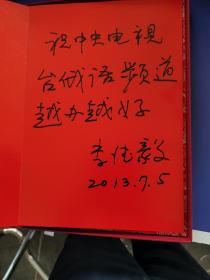 祝中央电視
台俄语频道
越办越好
李佳毅
2013.7.5